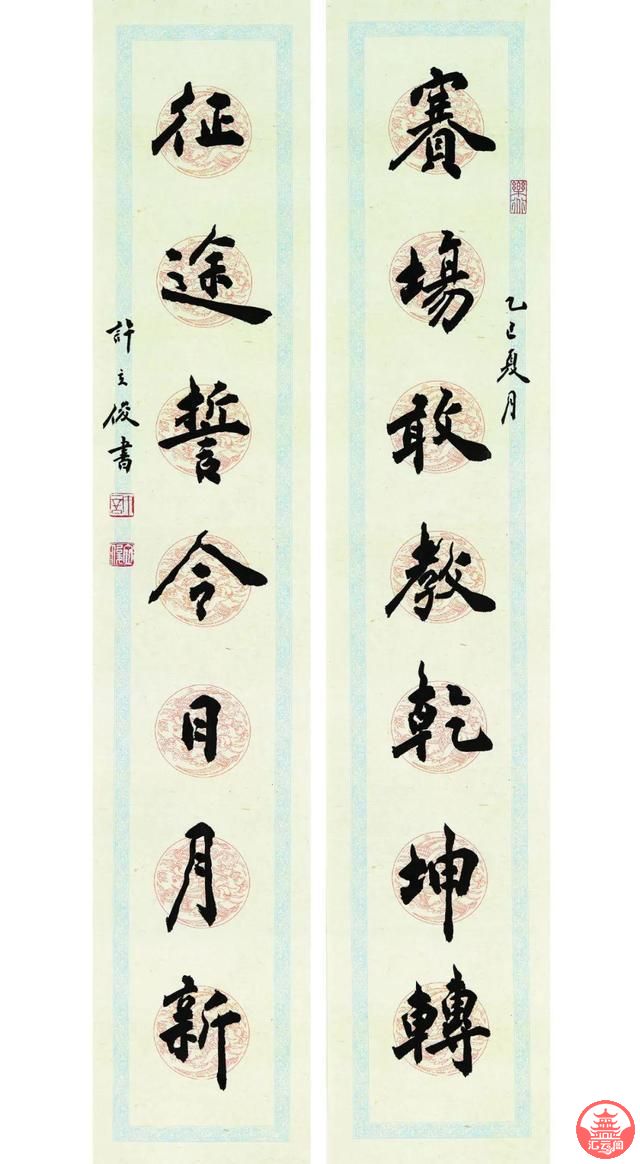 賽場敢教乾坤轉
乙巳夏月
征途誓令日月新
許立俊書
汇云阁